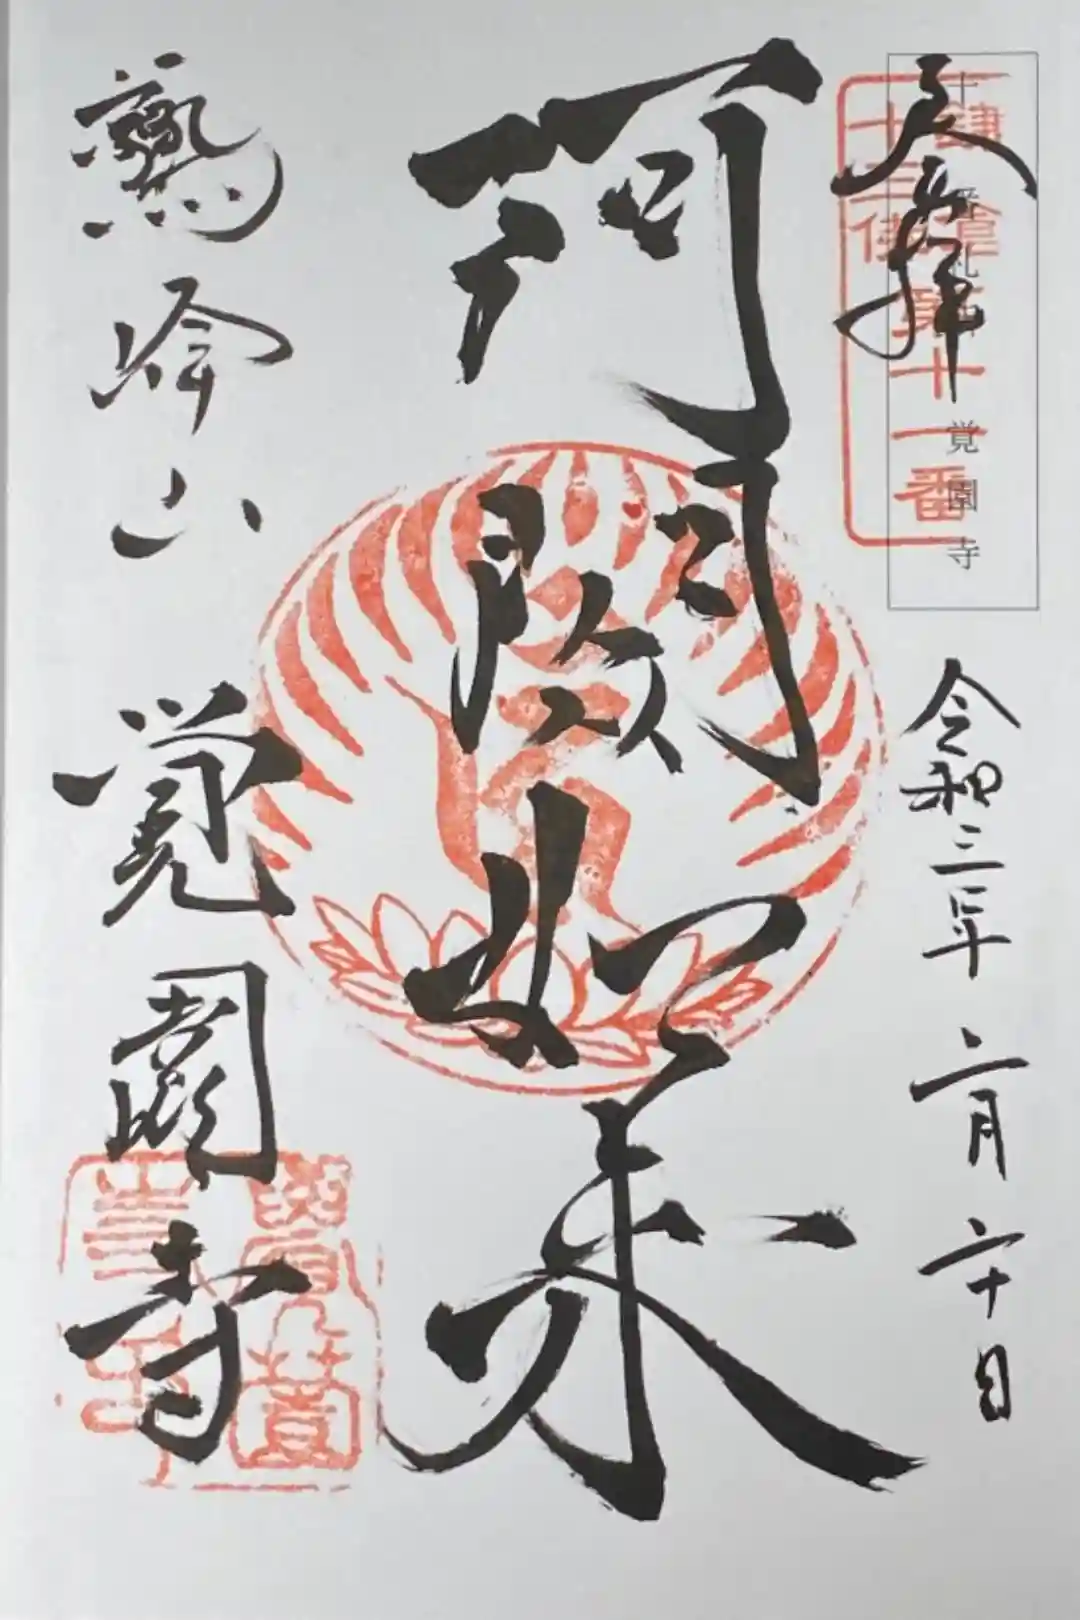 奉拝
鎌倉
十三佛
第十一番
十一番札所 覚園寺
令和三年二月二十日
阿閦如来
鷲峰山
覚園寺